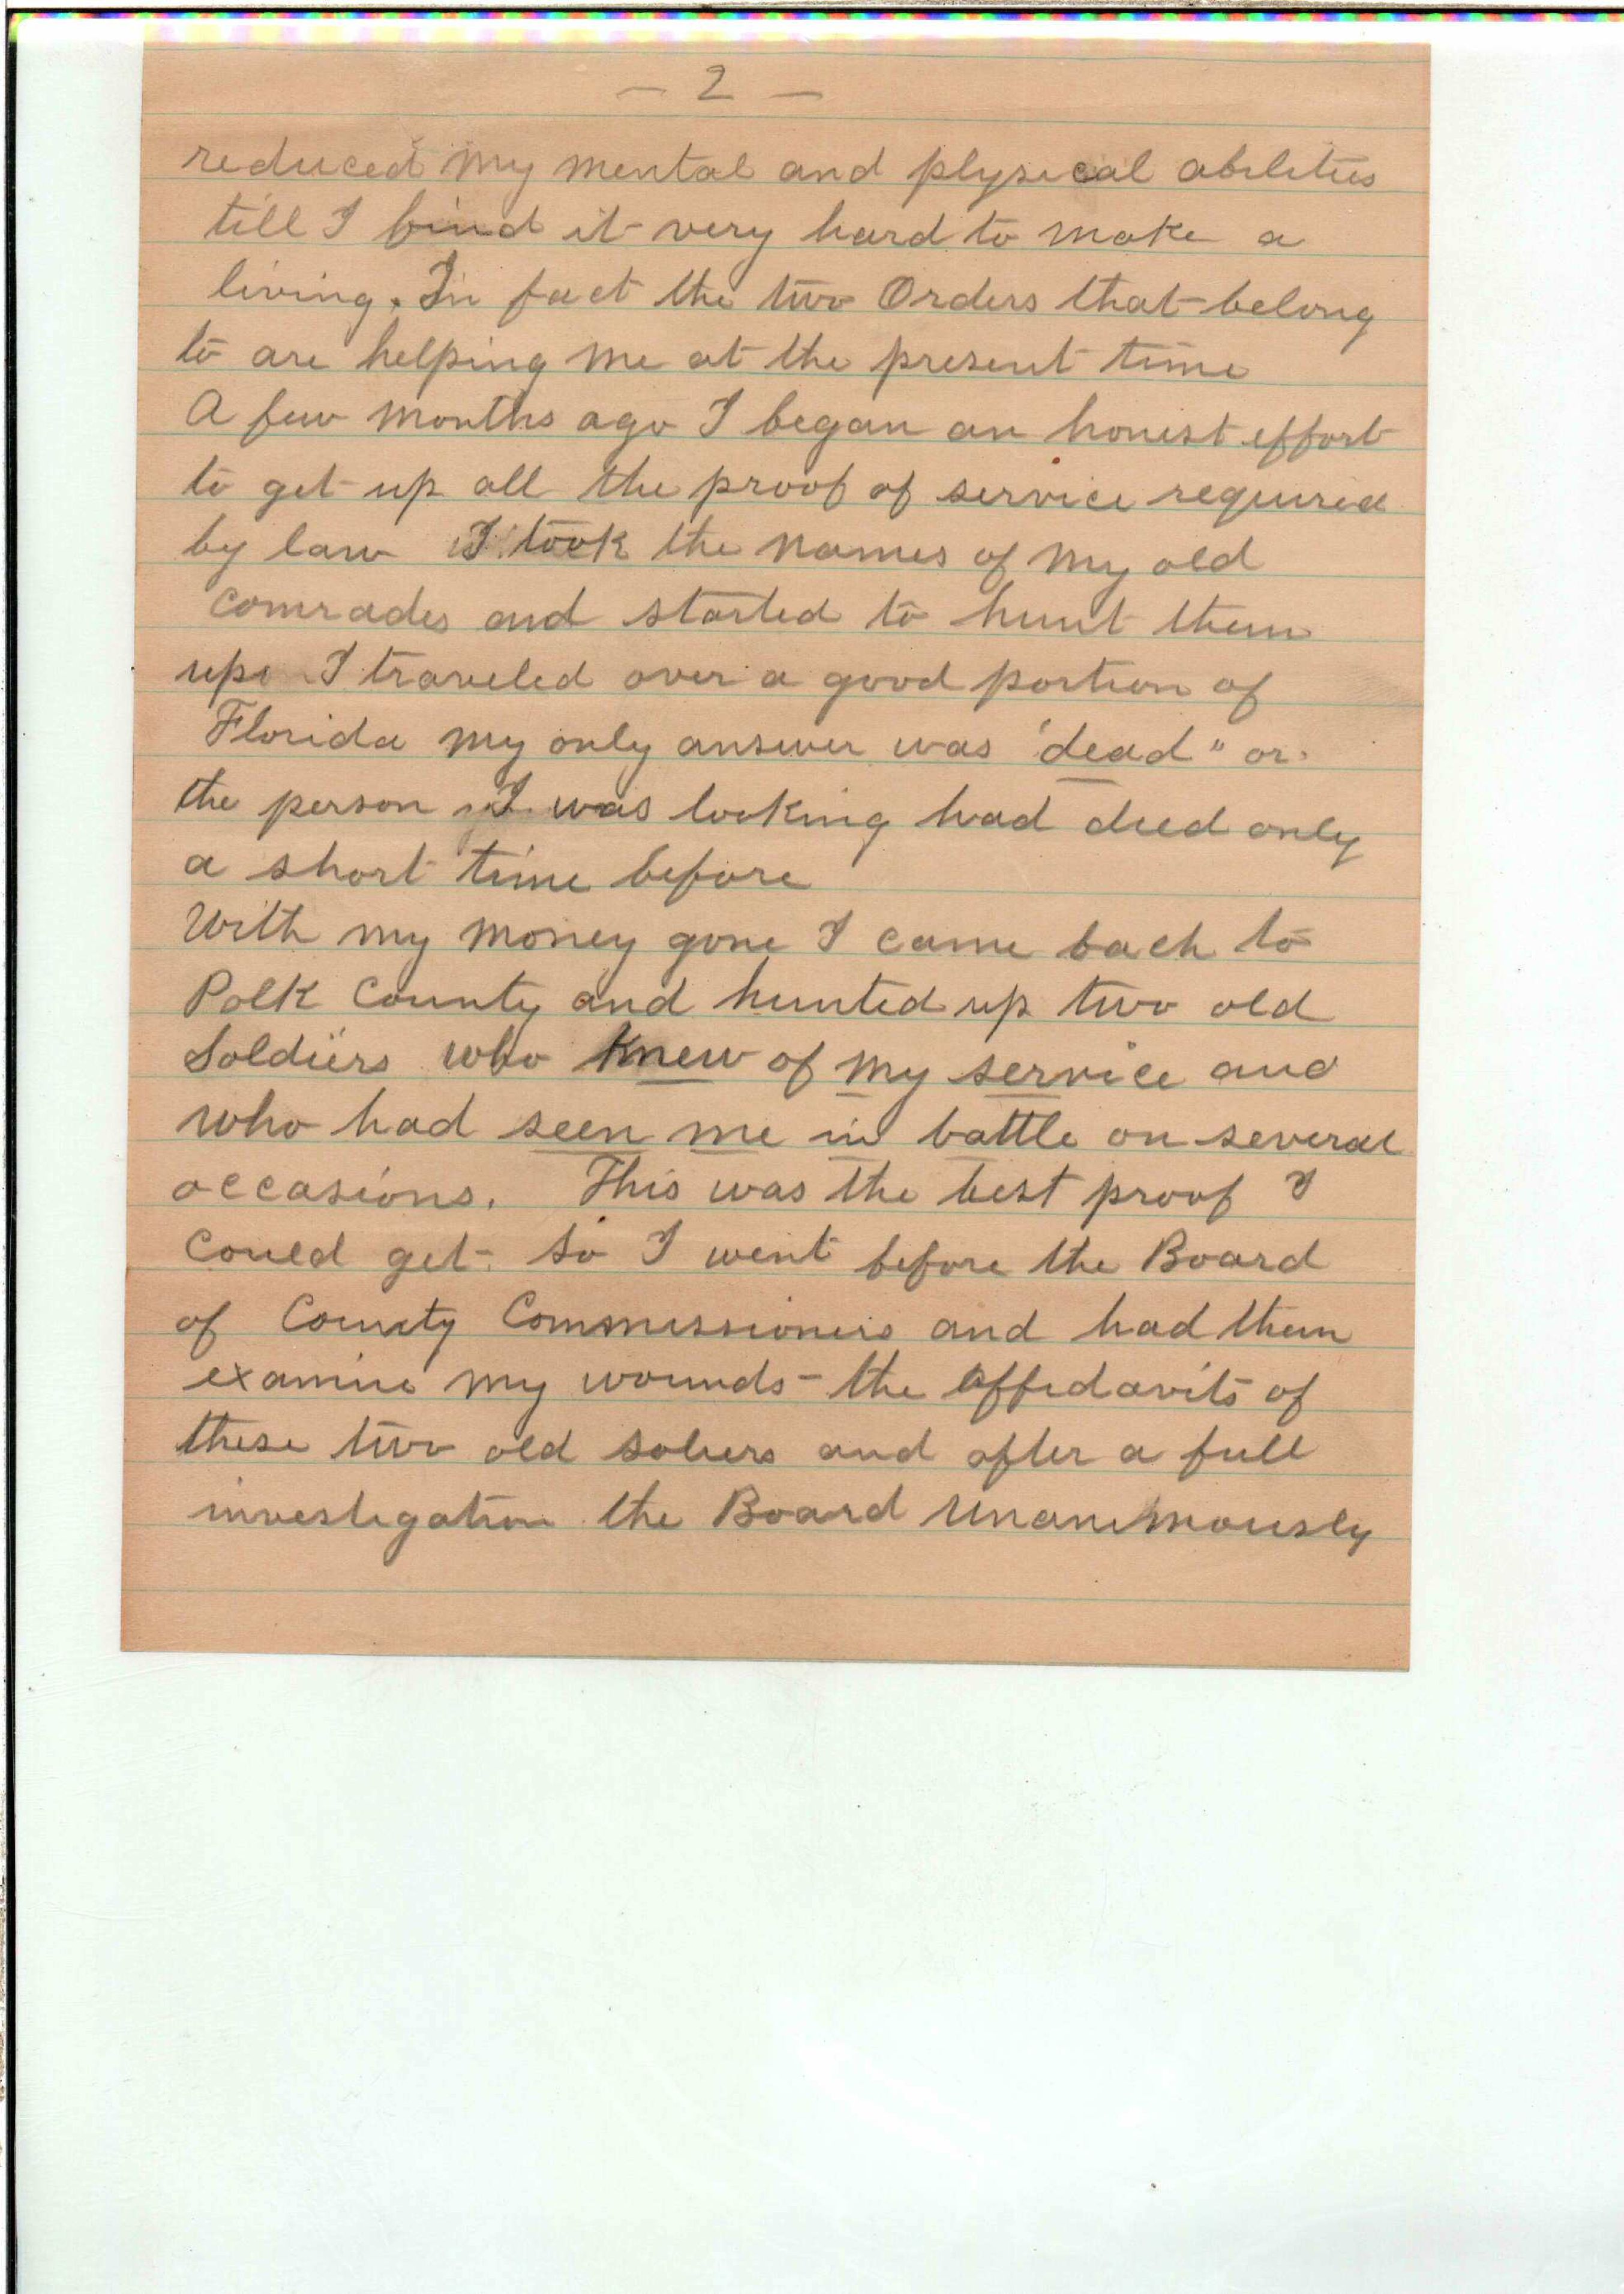 - 2 -
reduced my mental and plysical abilities
till I find it very hard to make a
living. In fact the two Orders that belong
to are helping me at the present time
A few months ago I began an honest effort
to get up all the proof of service required
by law I took the names of my old
comrades and started to hunt them
up. I traveled over a good portion of
Florida my only answer was "dead" or
the person I was looking had died only
a short time before
With my money gone I came back to
Polk County and hunted up two old
Soldiers who knew of my service and
who had seen me in battle on several
occasions. This was the best proof I
could get. So I went before the Board
of County Commissioners and had them
examine my wounds - the affidavits of
these two old soliers and after a full
investigation the Board unanimously